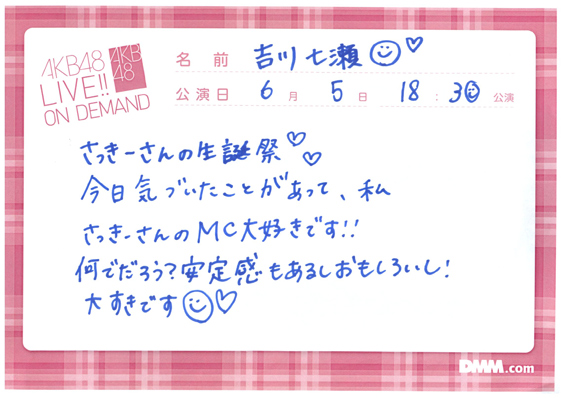 AKB48
LIVE!!
ON DEMAND
AKB
48
名前 吉川七瀬
公演日 6月5日 18:30公演
さっきーさんの生誕祭♡♡
今日気づいたことがあって、私
さっきーさんのMC大好きです!!
何でだろう?安定感もあるしおもしろいし!
大すきです
DMM.com